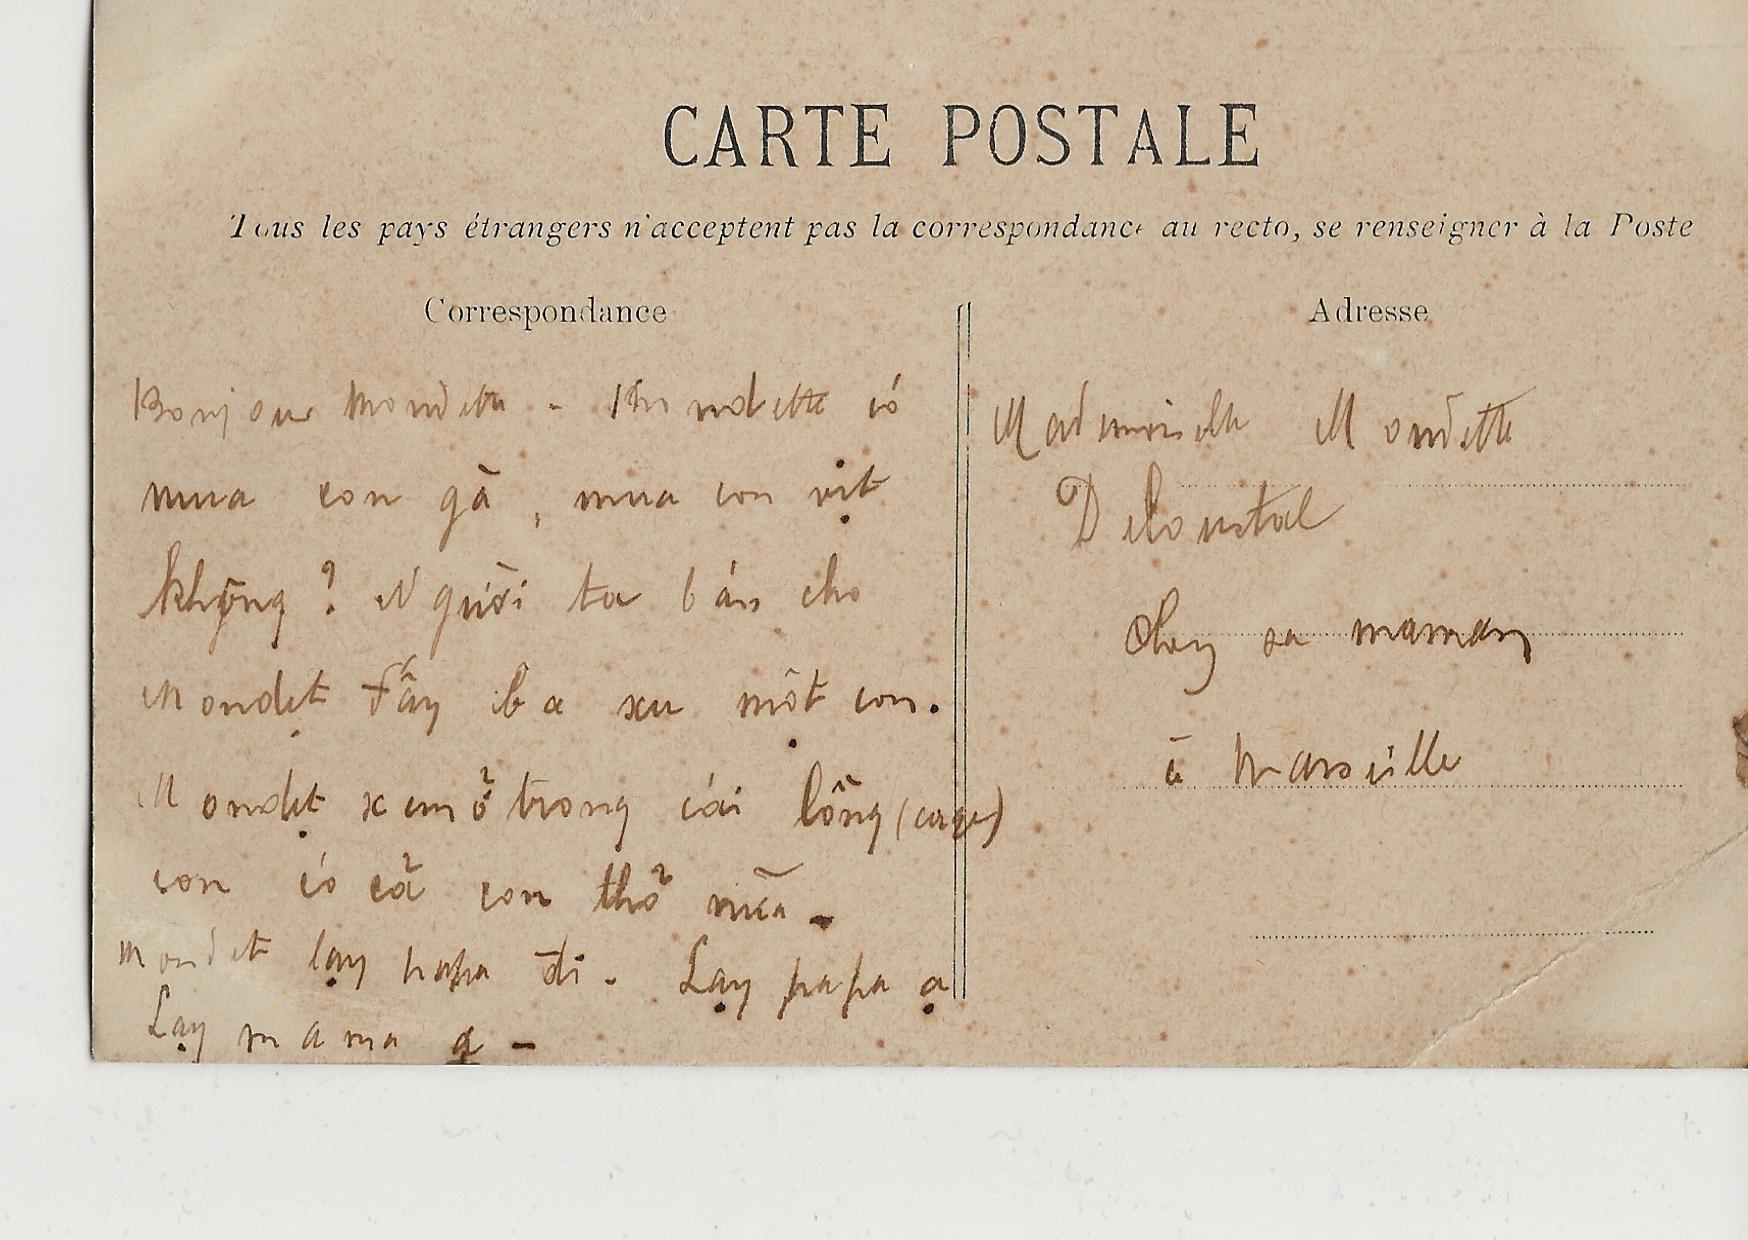 CARTE POSTALE
Tous les pays étrangers n'acceptent pas la correspondance au recto, se renseigner à la Poste
Correspondance
Adresse
Bonjour Mondette - Mondette có
mua con gà, mua con vịt
không? Người ta bán cho
Mondẹt đấy ba xu một con.
Mondẹt xem ở trong cái lồng (cage)
con có cả con thỏ nữa -
Mondet lạy papa đi. Lạy papa ạ
Lạy mama ạ -
Mademoiselle Mondette
Deloustal
Chez sa maman
à Marseille